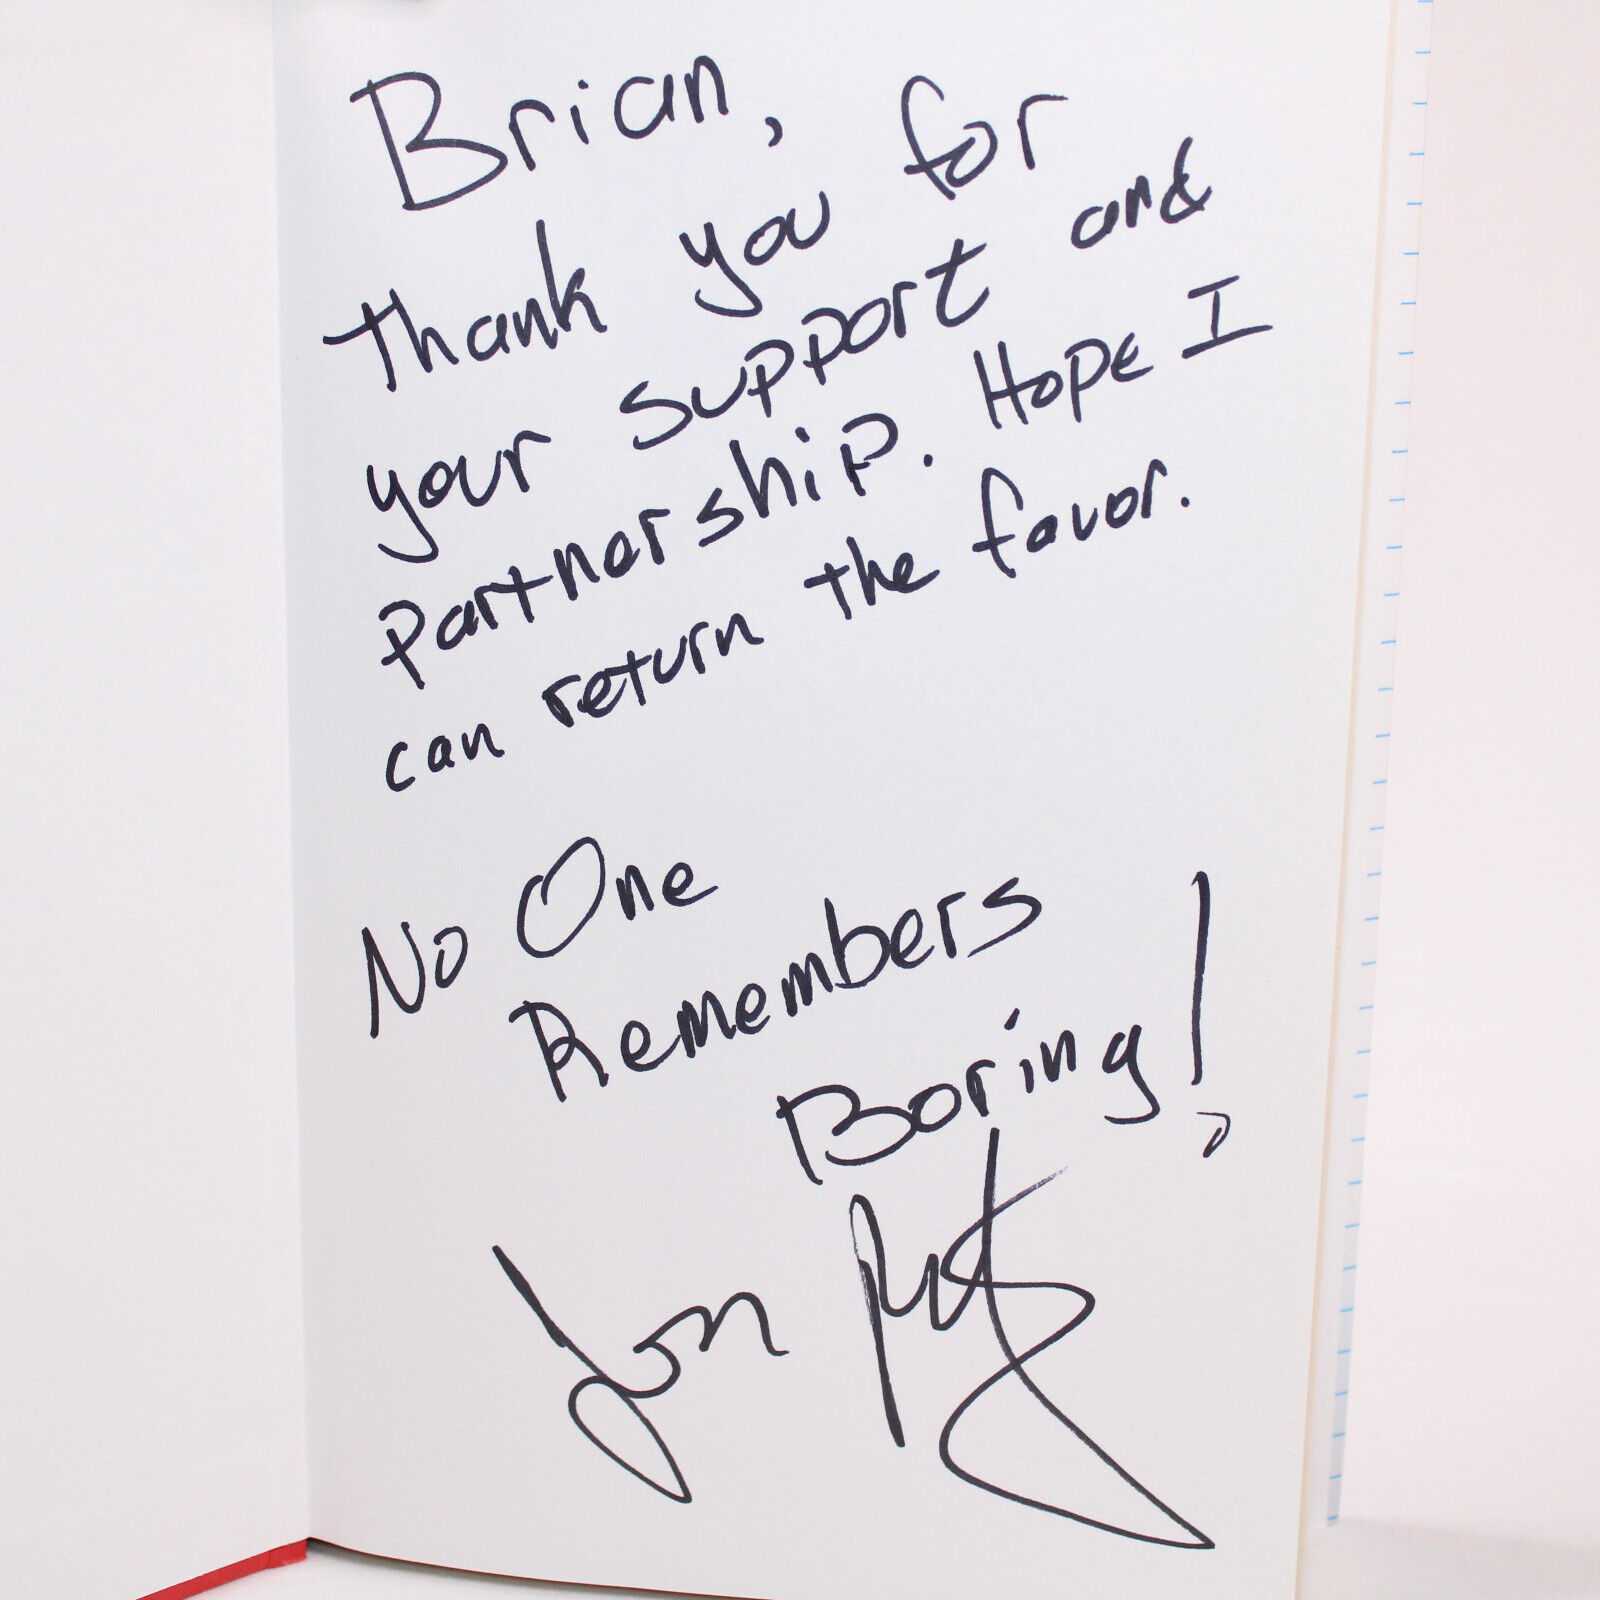 Brian,
Thank you for
your support and
partnership. Hope I
can return the favor.
No One
Remembers
Boring!
Jon